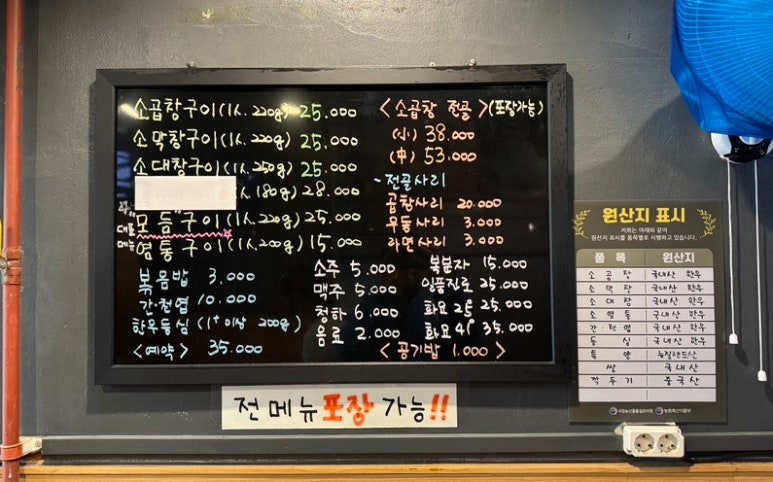 소곱창구이(1人. 220g) 25.000
소막창구이(1人. 220g) 25.000
소대창구이(1人. 250g) 25.000
1人. 180g) 28.000
대표
메뉴
"모듬"구이(1人. 220g) 25.000
염통구이(1人. 200g) 15.000
볶음밥 3.000
간.천엽 10.000
한우등심 (1⁺ 이상 200g)
<예약> 35.000
<소곱창 전골>(포장가능)
(小) 38.000
(中) 53.000
-전골사리
곱창사리 20.000
우동사리 3.000
라면사리 3.000
소주 5.000
맥주 5.000
청하 6.000
음료 2.000
복분자 15.000
일품진로 25.000
화요 25° 25.000
화요 41° 35.000
<공기밥 1.000>
전메뉴 포장 가능!!
원산지 표시
저희는 아래와 같이
원산지 표시를 품목별로 시행하고 있습니다.
품목 원산지
소곱창 국내산 한우
소막창 국내산 한우
소대창 국내산 한우
소염통 국내산 한우
간·천엽 국내산 한우
등심 국내산 한우
특양 뉴질랜드산
쌀 국내산
깍두기 중국산
국립농산물품질관리원 농림축산식품부